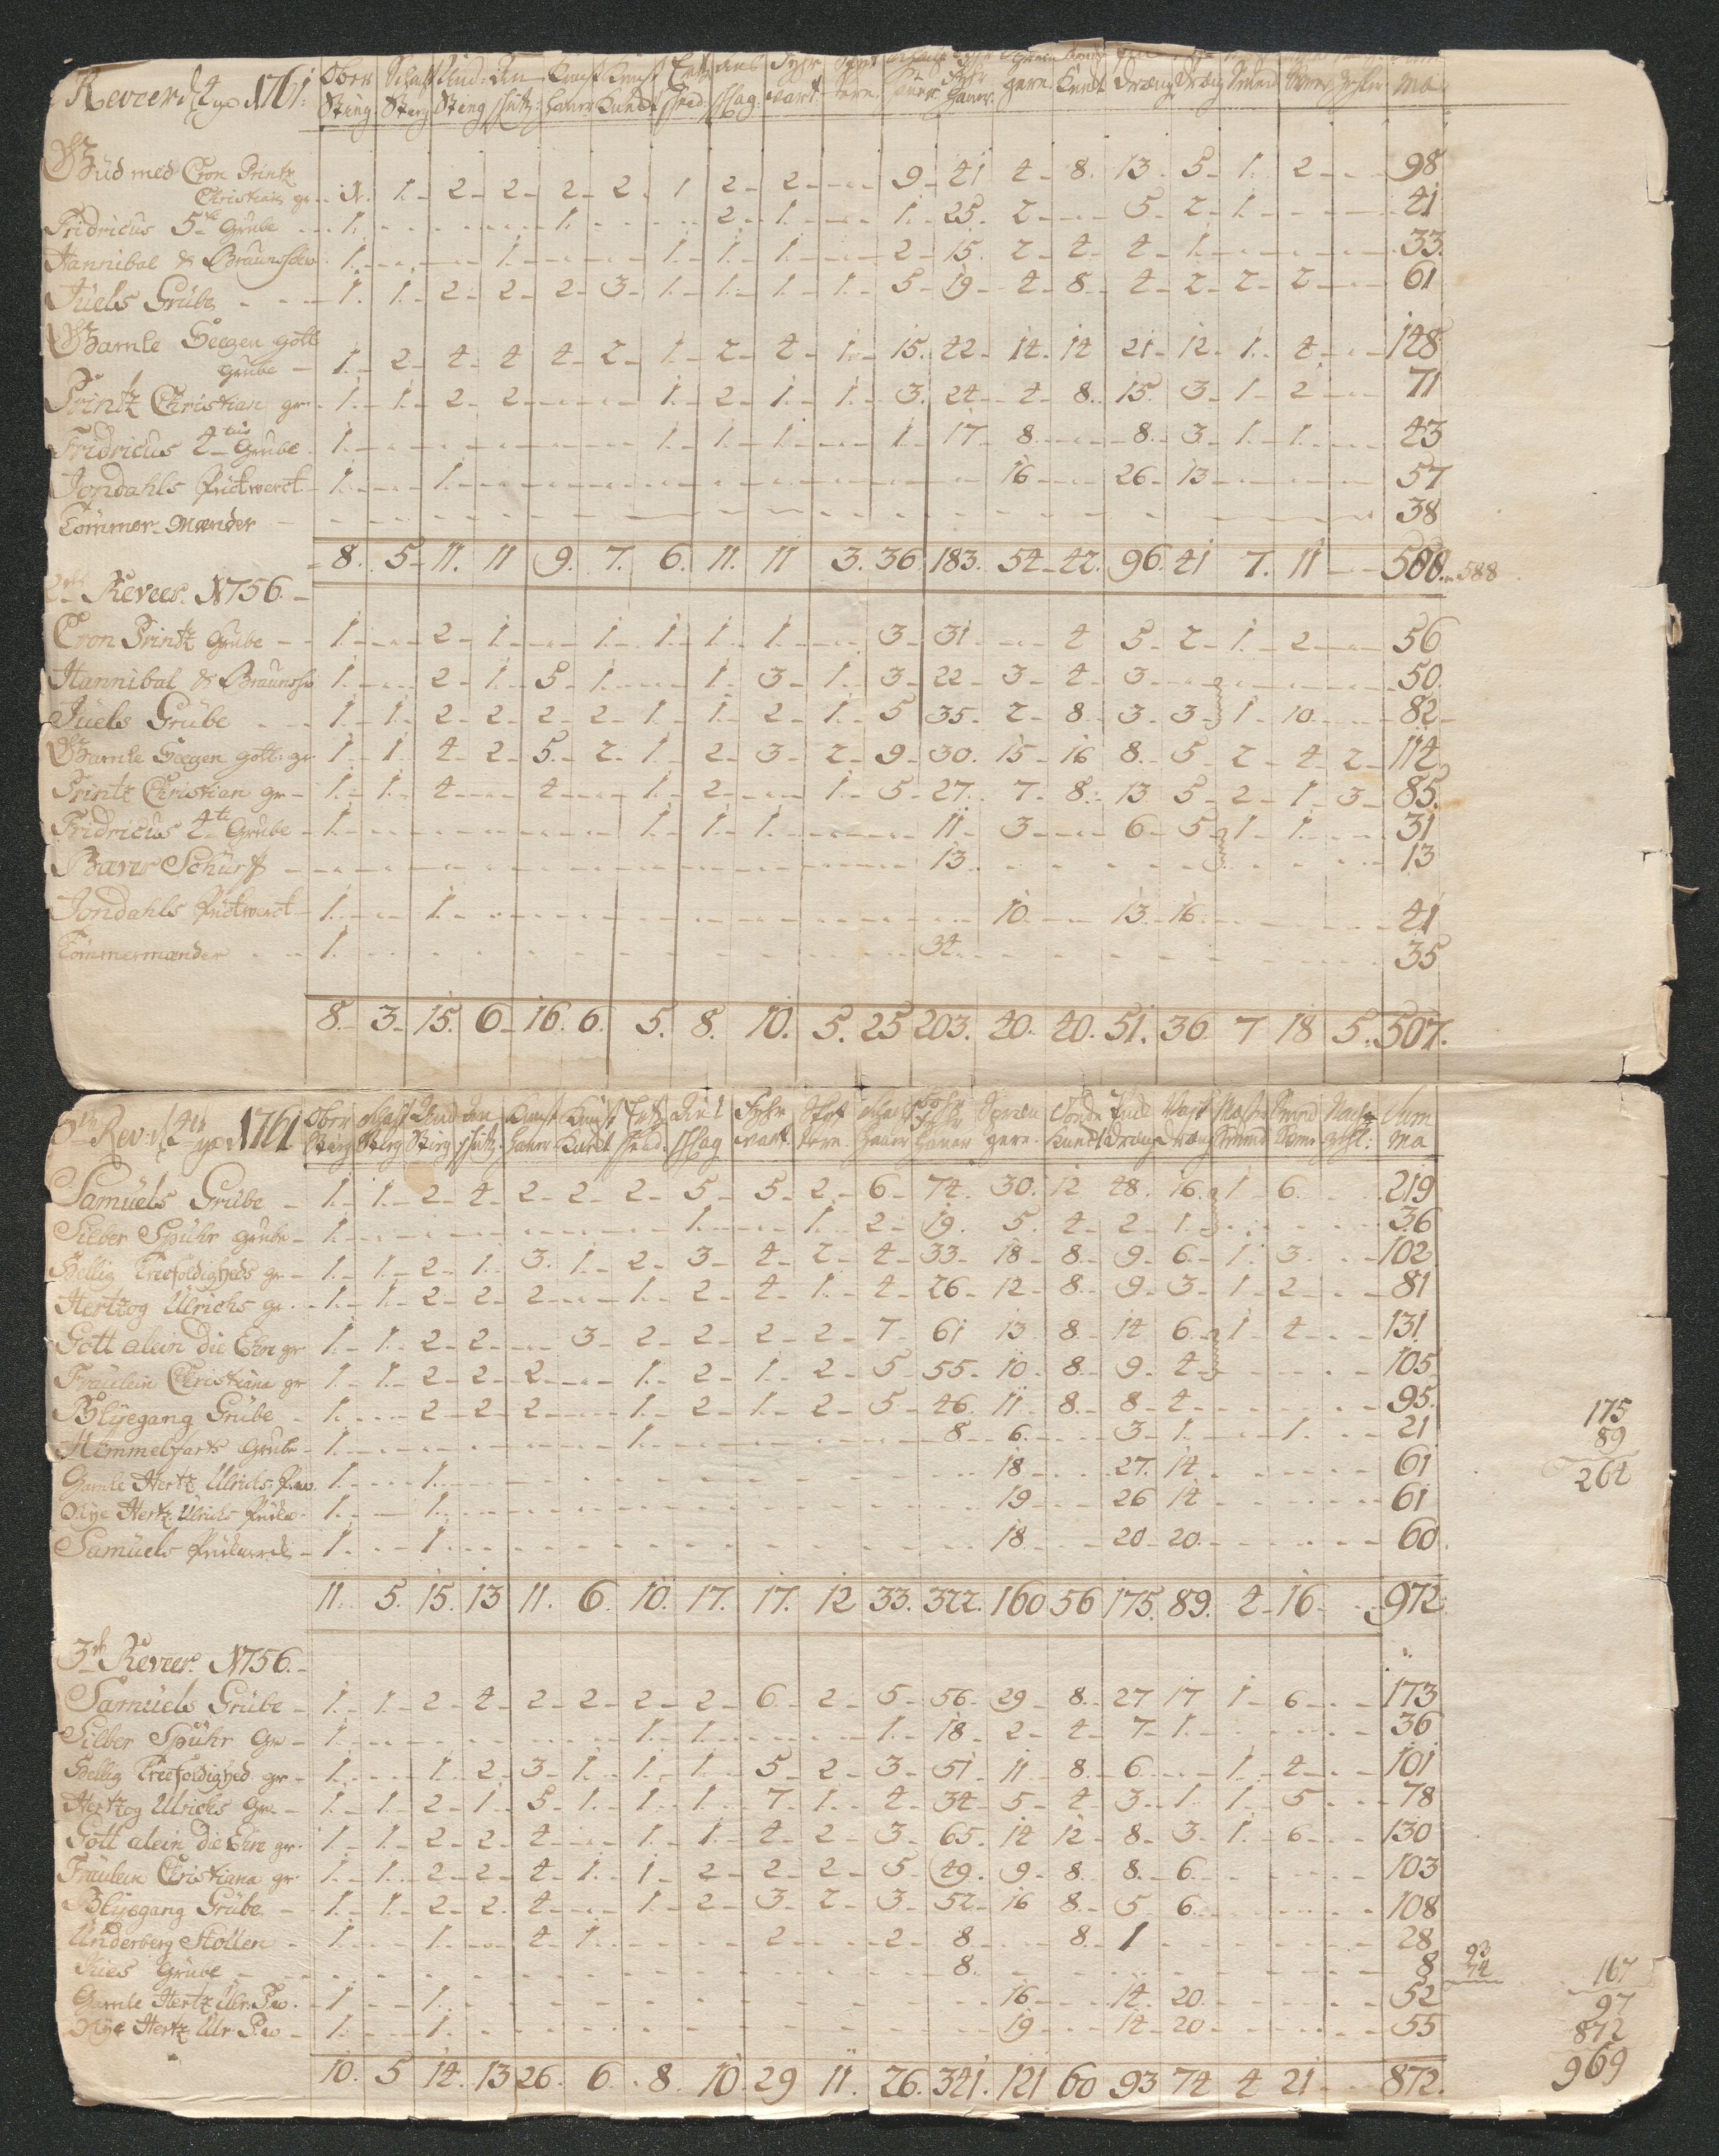 Reveer 1761
Ober Schatt Und: Kunst Kunst
Steng Steng Steng Haner Knecht ma
Gud med Cron Printz
Christian gr. 1. 1. 2 2 2 2. 1 2 2 9 41 4 8. 13 5 1. 2 98
Fridricus 5te Grube 1. 1. 2 1. 1. 25. 2 5 2 1. 41
Hannibal & Braunschw 1. 1. 1. 1. 1. 2 15. 2 4 4 1. 33.
Juels Grube 1. 1. 2 2 2 3 1. 1. 1. 1. 5 19 4 8. 4 2 2 2 61
Gamle Seegen gott
grube 1. 2 4 4 4 2 1. 2 4 1. 15. 42 14. 14 21 12 1. 4 148
Printz Christian gr. 1. 1. 2 2 1. 2 1. 1. 3. 24 4 8. 15. 3 1 2 71
Fridricus 4tus Grube 1. 1. 1. 1. 1. 17 8. 8. 3 1. 1. 43
Jondahls Puckwerck 1. 1. 16 26 13 57
Tömmer-Mænder 38
8. 5 11. 11 9. 7. 6. 11. 11 3. 36 183. 54 42. 96. 41 7. 11 588. 588
2de Reveer. 1756.
Cron Printz Grube 1. 2 1. 1. 1. 1. 1. 3 31 4 5 2 1. 2 56
Hannibal & Braunschw 1. 2 1. 5 1. 1. 3 1. 3 22 3 4 3 50
Juels Grube 1. 1. 2 2 2 2 1. 1. 2 1. 5 35. 2 8. 3 3 1 10 82
Gamle Seegen gott: gr. 1. 1. 4 2 5. 2. 1. 2 3 2 9 30. 15 16 8. 5 2 4 2 114
Printz Christian gr 1. 1. 4 4 1. 2 1. 5 27. 7 8. 13 5 2 1. 3 85.
Fridricus 4te Grube 1. 1. 1. 1. 11 3 6 5 1 1. 31
Bæver Schürff 13. 13
Jondahls Puckwerck 1. 1. 10. 13. 16. 41
Tömmermænder 1. 34. 35
8. 3 15. 6 16. 6. 5. 8. 10. 5. 25 203. 40. 40. 51. 36. 7 18 5. 507.
3de Rev: 1761 Ober Schatt Und Kunst Kunst Sum
Steng Steng Steng Haner Knecht schlag vart haner haner gere. Knecht Dreng Dreng ma
Samuels Grube 1. 1. 2 4 2 2 2 5 5 2 6 74. 30. 12 48. 16. 1 6 219
Silber Spuhr grube 1. 1. 1. 2 19. 5. 4 2 1. 36
Hellig Treefoldigheds gr 1. 1. 2 1. 3. 1. 2 3 4 2 4 33 18 8. 9 6 1. 3. 102
Hertzog Ulrichs gr. 1. 1. 2 2 2 1. 2 4 1. 4 26 12 8. 9 3 1 2 81
Gott alein die Ehre gr 1. 1. 2 2 3 2 2 2 2 7 61 13 8. 14 6. 1 4 131
Fraulein Christiana gr 1. 1. 2 2 2 1. 2 1. 2 5 55. 10 8. 9 4 105
Blyegang Grube 1. 2 2 2 1. 2 1. 2 5 46. 11 8. 8 4 95. 175
Hemmelfarts Grube 1. 1. 8 6. 3 1. 1. 21 89
Gamle Hertz Ulrichs P.w. 1. 1. 18 27. 14 61 264
Nÿe Hertz Ulrichs Puckw. 1. 1. 19 26 14 61
Samuels Puckwerck 1. 1. 18 20 20. 60
11. 5. 15. 13 11. 6. 10. 17. 17. 12 33. 322. 160 56 175. 89. 4 16 972.
3de Reveer. 1756.
Samuels Grube 1. 1. 2 4 2 2 2 2 6 2 5 56. 29 8. 27 17 1 6 173
Silber Spuhr Gr 1. 1. 1. 1. 18 2 4 7 1. 36
Hellig Treefoldighed gr 1. 1. 2 3 1. 1. 1. 5 2 3 51 11 8 6 1. 4 101
Hertzog Ulrichs Gr. 1. 1. 2 1. 5 1. 1. 1. 7 1. 4 34 5 4 3. 1. 1. 5 78
Gott alein die Ehre gr. 1. 1. 2 2 4 1. 1. 4 2 3 65. 14 12 8. 3 1. 6 130
Fraulein Christiana gr. 1. 1. 2 2 4 1. 1. 2 2 2 5 49. 9 8. 8. 6. 103
Blyegang Grube 1. 1. 2 2. 4 1. 2 3 2 3 52. 16 8. 5. 6. 108
Underberg Stollen 1. 1. 4 1. 2 2 8 8. 1 28 93
Kies Grube 8. 8 74 167
Gamle Hertz Ulr. P.w. 1. 1. 16 14. 20. 52 97
Nÿe Hertz Ulr P.w 1. 1. 19 14 20 55 872
10. 5 14. 13 26. 6. 8. 10. 29 11. 26. 341. 121 60 93 74 4 21 872. 969